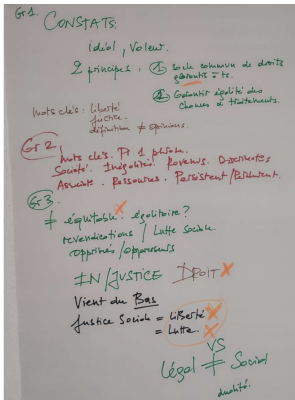 Gr 1. CONSTATS:
idéal, valeur.
2 principes. ① socle commun de droits
garantis = ts.
② Garantir égalité des
chances & traitements.
mots clés : liberté
justice.
définition ≠ opinions.
Gr 2.
mots clés. Pr 1 phrase.
Société. Inégalités. Revenus. Discréantes
Assurée. Ressources. Persistent / Perdurent.
Gr 3.
≠ équitable. égalitaire ?
revendications / Lutte sociale.
opprimés / oppresseurs
IN/JUSTICE DROIT
Vient du Bas
Justice Sociale = LIBERTÉ
= Lutte.
VS
Légal ≠ Social
dualité.